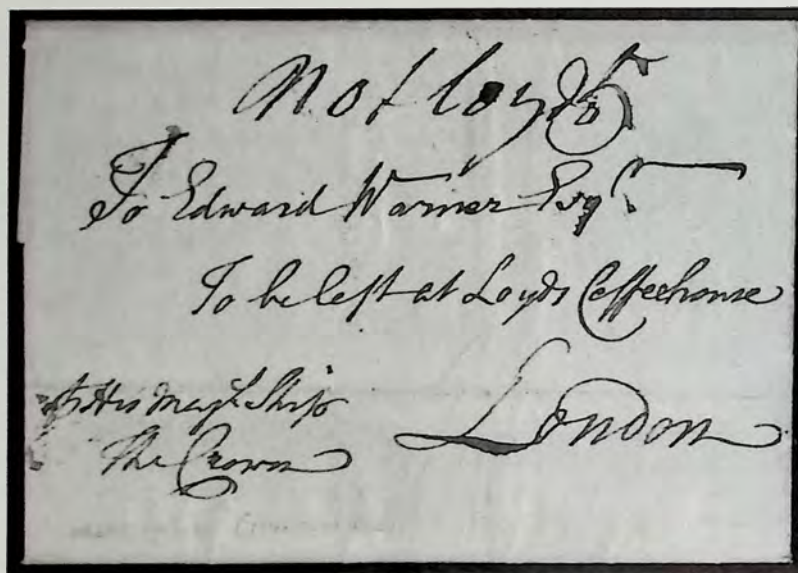 not loyds
To Edward Warner Esqr
To be left at Loyds Coffeehouse
His Majts Ship
The Crown
London